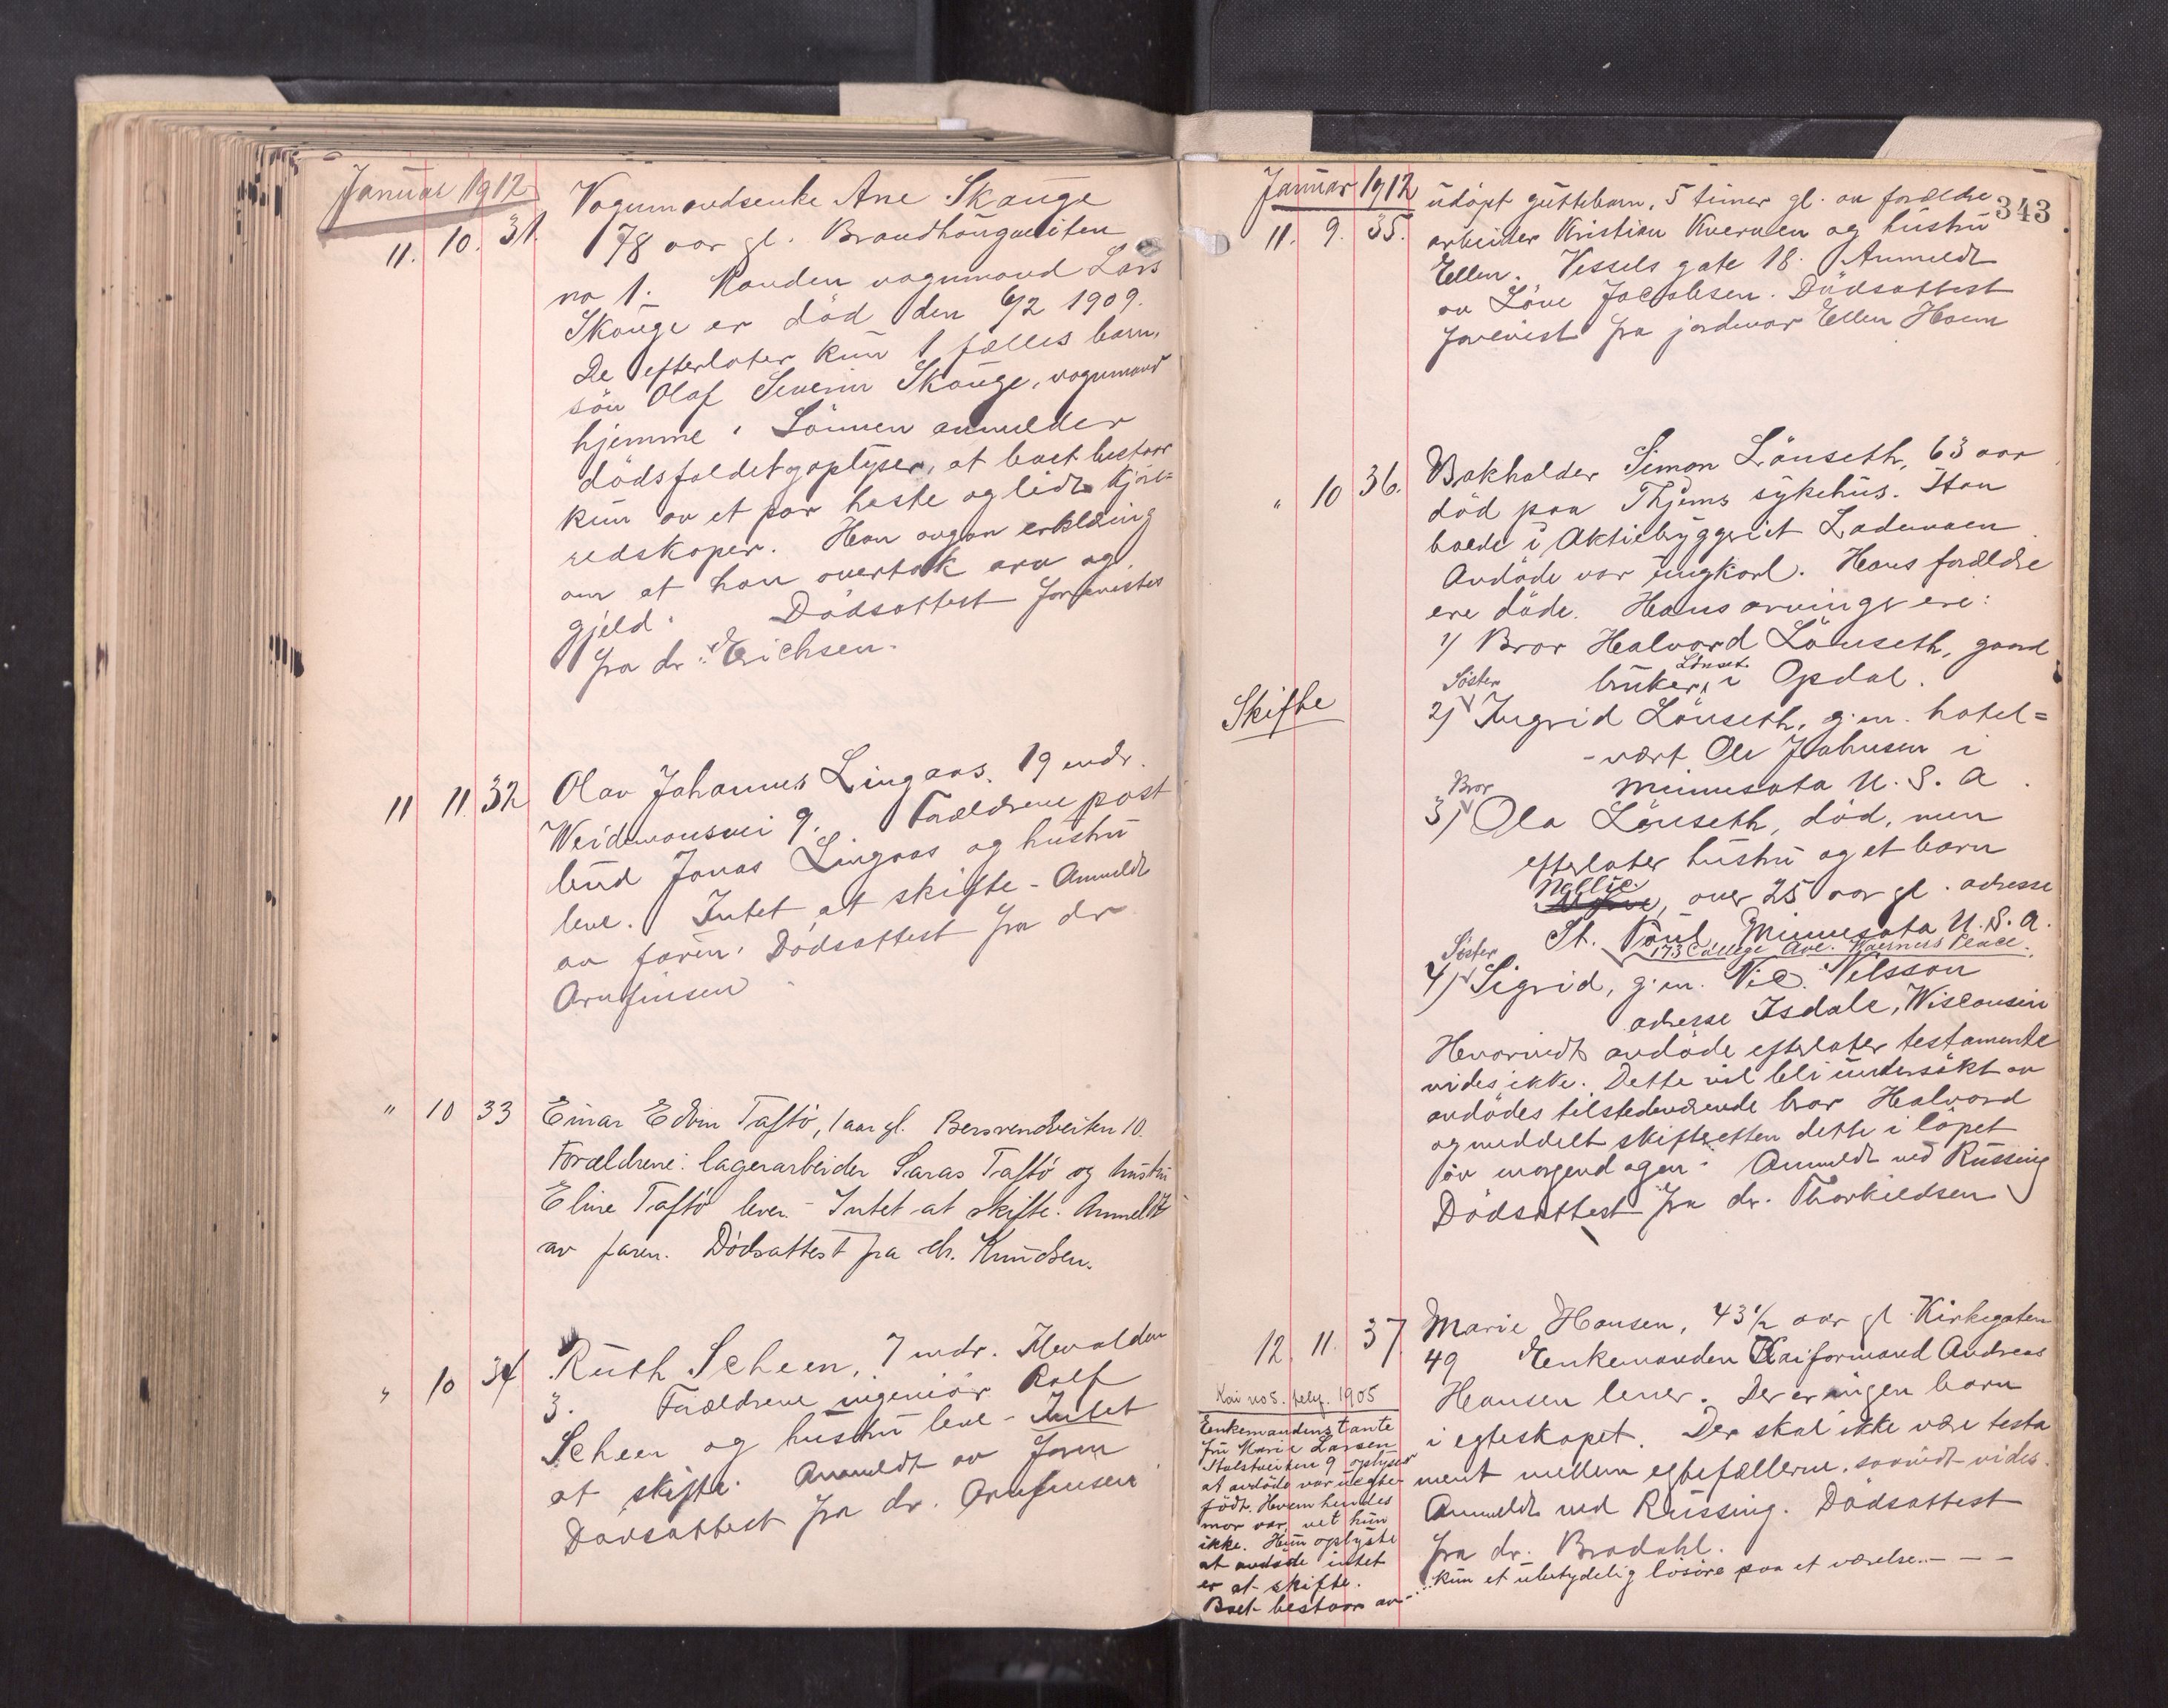 Januar 1912
11. 10. 31. Vognmandsenke Ane Skauge
78 aar gl. Brandhaugveiten
no 1. Manden vognmand Lars
Skauge er död den 6/2 1909.
De efterlater kun 1 fælles barn,
sön Olaf Severin Skauge, vognmand
hjemme. Sönnen anmelder
dödsfaldet og oplyser, at boet bestaar
kun av et par heste og lidt kjöre=
redskaper. Han avgav erklæring
om at han overtok arv og
gjeld. Dödsattest forevistes
fra dr. Erichsen.
11 11. 32 Olav Johannes Lingaas. 19 mdr.
Weidemansvei 9. Forældrene post
bud Jonas Lingaas og hustru
leve. Intet at skifte - Anmeldt
av faren. Dödsattest fra dr
Arnfinsen
" 10 33 Einar Edvin Taftö, 1 aar gl. Bersvendveiten 10.
Forældrene: lagerarbeider Saras Taftö og hustru
Eline Taftö lever. - Intet at skifte. Anmeldt
av faren. Dödsattest fra dr. Knudsen.
" 10 34 Ruth Scheen, 7 mdr. Ilevolden
3. Forældrene ingeniör Rolf
Scheen og hustru leve - Intet
at skifte. Anmeldt av faren
Dödsattest fra dr. Arnfinsen
343
Januar 1912
11. 9. 35. udöpt guttebarn, 5 timer gl. av forældre
arbeider Kristian Kvernen og hustru
Ellen. Vessels gate 18. Anmeldt
av Löve Jacobsen. Dödsattest
forevist fra jordmor Ellen Hoem
" 10 36. Bokholder Simon Lönseth, 63 aar
död paa Thjems sykehus. Han
boede i Aktiebryggeriet Lademoen
Avdöde var ungkarl. Hans forældre
ere döde. Hans arvinger ere:
1) Bror Halvord Lönseth, gaard
bruker, Lönset i Opdal.
Skifte
2) Söster Ingrid Lönseth, g.m. hotel=
-vært Ole Johnsen i
Minnesota U.S.A.
3) Bror Ola Lönseth, död, men
efterlater hustru og et barn
Nellie, over 25 aar gl. adresse
St. Paul Minnesota U.S.A.
173 College Ave. Place.
4) Söster Sigrid, g.m. Nic. Nilsson
adresse Isdale, Wisconsin
Hvorvidt avdöde efterlater testamente
vides ikke. Dette vil bli undersökt av
avdödes tilstedeværende bror Halvord
og meddelt skifteretten dette i löpet
av morgendagen. Anmeldt ved Russing
Dödsattest fra dr. Thorkildsen
12. 11. 37. Marie Hansen, 43 1/2 aar gl Kirkegaten
49 Enkemanden Kaiformand Andreas
Hansen lever. Der er ingen barn
i egteskapet. Der skal ikke være testa
ment mellem egtefællerne, saavidt vides.
Anmeldt ved Russing. Dödsattest
fra dr. Bradahl.
Kai no 5. 1905
Enkemandens tante
fru Marie Larsen
9 oplyser
at avdöde var uegte
födt. Hvem hendes
mor var, vet hun
ikke. Hun oplyste
at avdöde intet
er at skifte.
Boet bestaar av
kun et ubetydelig lösöre paa et værelse. - - -